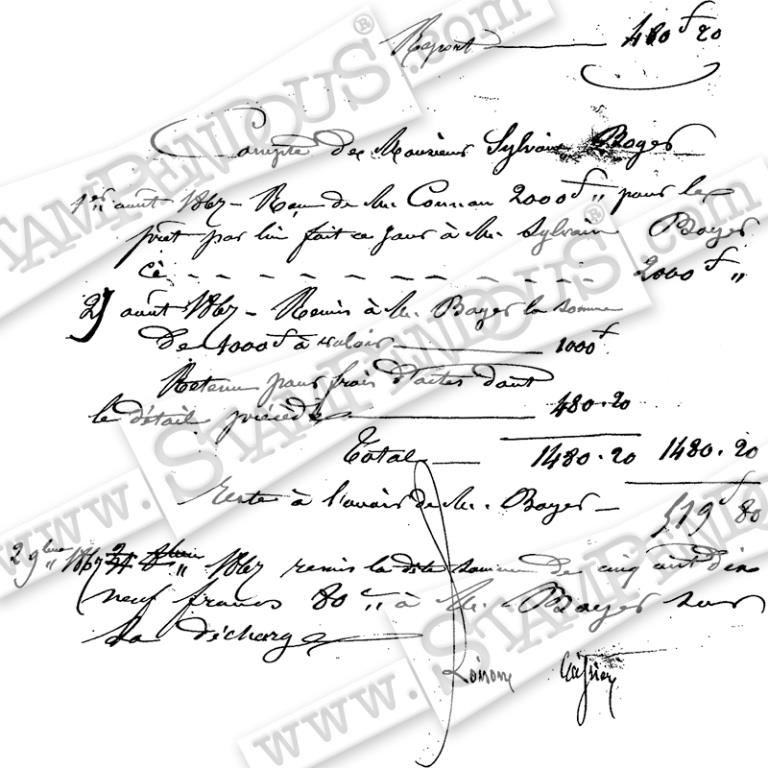 Report 480 f 20
Compte de Monsieur Sylvain Boyer
1er août 1867 - Reçu de M. 2000 f " pour le
prêt par lui fait ce jour à M. Sylvain Boyer
Ci - - - - - - - - - - - - 2000 f "
août 1867 - Remis à M. Boyer la somme
de 1000 f à valoir 1000 f
Retenu pour frais d'actes dont
le détail précède 480.20
Total 1480.20 1480.20
reste à l'avoir de M. Boyer - 519 f 80
2 9bre 1867 1867 remis la dite somme de cinq cent dix
neuf francs 80 c à M. Boyer sur
sa décharge
www.STAMPENDOUS®.com
www.STAMPENDOUS®.com
www.STAMPENDOUS®.com